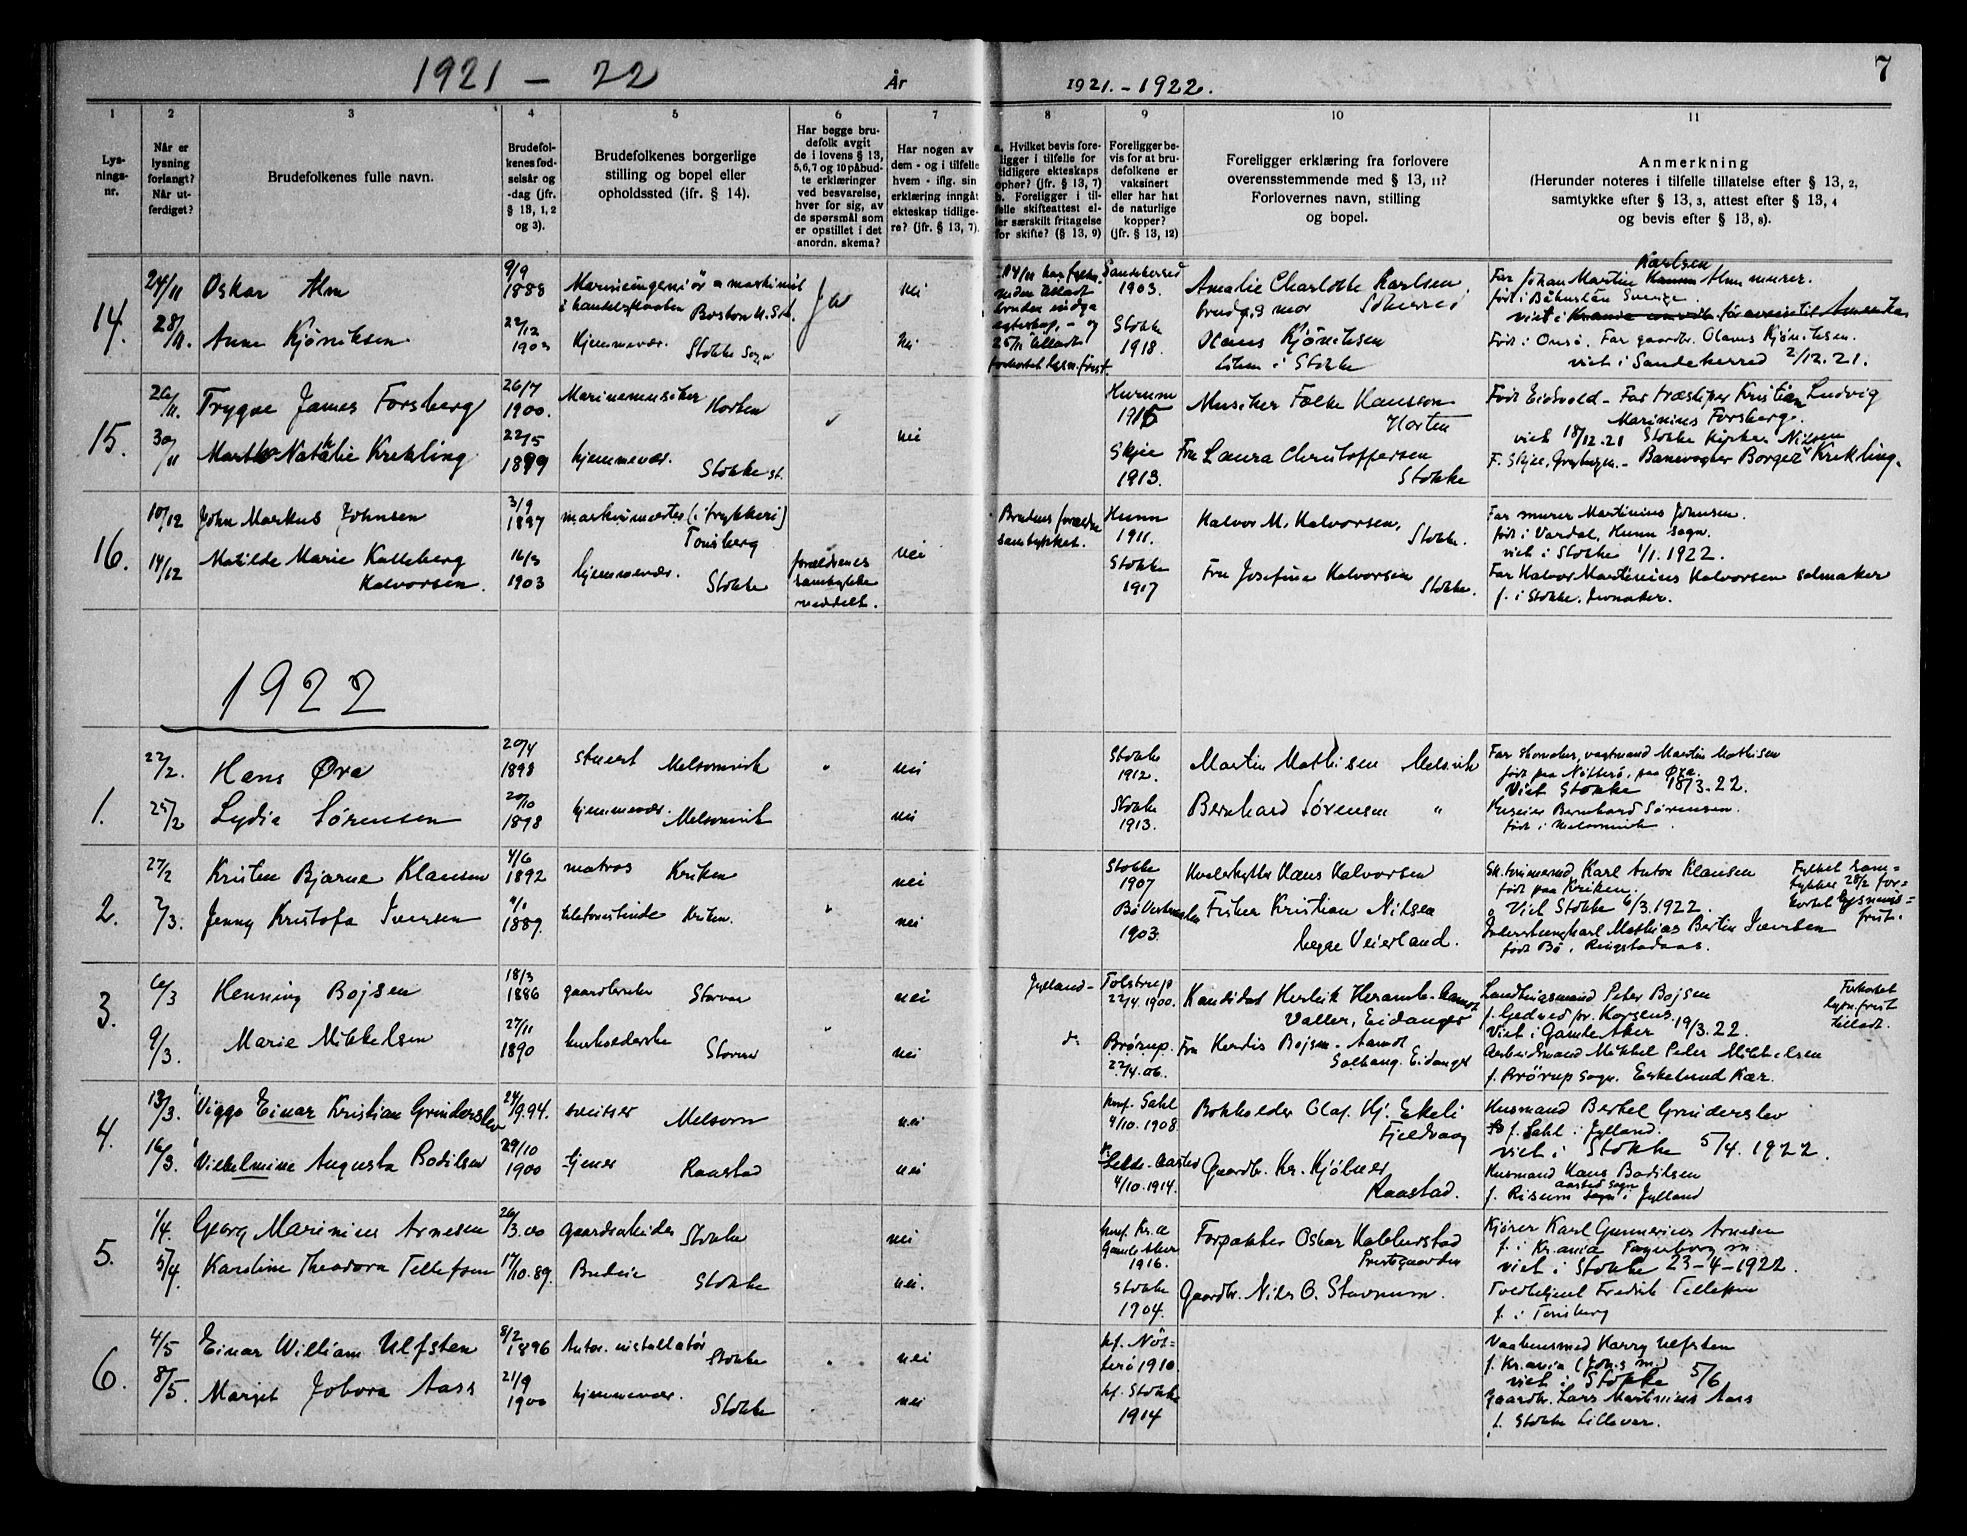 1921 - 22
År
1921. - 1922.
7
1
2
3
4
5
6
7
8
9
10
11
Lys-
nings-
nr.
Når er
lysning
forlangt?
Når ut-
ferdiget?
Brudefolkenes fulle navn.
Brudefol-
kenes fød-
selsår og
-dag (jfr.
§ 13, 1, 2
og 3).
Brudefolkenes borgerlige
stilling og bopel eller
opholdssted (ifr. § 14).
Har begge bru-
defolk avgit
de i lovens § 13,
5,6,7 og 10 påbud-
te erklæringer
ved besvarelse,
hver for sig, av
de spørsmål som
er opstillet i det
anordn. skema?
Har nogen av
dem - og i tilfelle
hvem - iflg. sin
erklæring inngåt
ekteskap tidlige-
re? (jfr. § 13, 7).
a. Hvilket bevis fore-
ligger i tilfelle for
tidligere ekteskaps
ophør? (jfr. § 13, 7)
b. Foreligger i til-
felle skifteattest el-
ler særskilt fritagelse
for skifte? (§ 13, 9)
Foreligger be-
vis for at bru-
defolkene er
vaksinert
eller har hat
de naturlige
kopper?
(jfr. § 13, 12)
Foreligger erklæring fra forlovere
overensstemmende med § 13, 11?
Forlovernes navn, stilling
og bopel.
Anmerkning
(Herunder noteres i tilfelle tillatelse efter § 13, 2,
samtykke efter § 13, 3, attest efter § 13, 4
og bevis efter § 13, 8).
14.
24/11 Oskar Alm 9/9 1888
Boston U.St. Ja nei
Sandeherred 1903.
Amalie Charlotte Karlsen,
brudg.s mor
Far Johan Martin Karlsen Alm murer.
født i Båhuslän Sverige.
28/11. Anna Kjøniksen 22/12
Hjemmevær. Stokke Sogn nei
Stokke 1918.
Olaus Kjøniksen
i Stokke
Født i Onsø. Far gaardbr. Olaus Kjøniksen.
viet i Sandeherred 2/12.21.
15.
26/11. Trygve James Forsberg 26/7 1900.
Marinemusiker Horten
Hurum
Musiker Folke Hansson
Horten
Født Eidsvold - Far træsliper Kristian Ludvig
Marinius Forsberg.
viet 18/12.21 Stokke Kirke
30/11 Martha Natalie Krekling 22/5 1899
hjemmevær. Stokke st. nei
Skjee 1913.
Fru Laura Christoffersen
Stokke
Banevogter Borger Nilsen Krekling.
16.
10/12 John Markus Johnsen 3/9 1897
maskinmester (i trykkeri)
Tønsberg
Brudens forældre
samtykket.
Hunn 1911.
Halvor M. Halvorsen,
Stokke.
Far murer Martinius Johnsen.
født i Vardal, Hunn sogn.
viet i Stokke 1/1. 1922.
14/12 Matilde Marie Kalleberg
Halvorsen. 16/3 1903
hjemmevær. Stokke
forældrenes
samtykke
meddelt.
nei
Stokke 1917
Fru Josefine Halvorsen
Stokke.
Far Halvor Martinius Halvorsen salmaker
f. i Stokke.
1922
1.
22/2. Hans Øra 20/4 1898
stuert Melsomvik " nei
Stokke 1912.
Martin Mathisen Melsvik
Far skomaker, vagtmand Martin Mathisen
født paa Nøtterø, paa Øra.
Viet Stokke 18/3.22.
25/2 Lydia Sørensen 20/10 1898
hjemmevær. Melsomvik nei
Stokke 1913.
Bernhard Sørensen "
Bernhard Sørensen.
født i Melsomvik.
2.
27/2 Kristen Bjarne Klausen 4/6 1892
matros Kriken nei
Stokke 1907
Hvalskytter Hans Halvorsen
Karl Anton Klausen
født paa Kriken.
Viet Stokke 6/3.1922.
2/3. Jenny Kristofa Iversen 1889.
telefonistinde Kriken. " nei
1903.
Fisker Kristian Nilsen
begge Veierland.
Mathias Bertin Iversen
født Bø,
Fylket sam-
tykket 28/2 for-
kortet lysnings-
frist.
3.
6/3 Henning Bojsen 18/3 1886
gaardbruker nei
Jylland - Tolstrup
22/4.1900.
Kandidat
Valler, Eidanger
Landtingsmand Peter Bojsen
f. Gedved pr. Horsens.
Viet i Gamle Aker 19/3.22.
Forkortet
lysn.frist
tilladt.
9/3. Marie Mikkelsen 27/11 1890
husholderske " nei
Brørup. 22/4.06.
Fru Herdis Bojsen-Aamot
Solhaug. Eidanger
Arbeidsmand Mikkel Peter Mikkelsen
f. Brørup sogn. Eskelund Kær.
4.
13/3. Viggo Einar Kristian Grinderslev 24/9.94.
sveitser Melsom nei
konf. Sahl
4/10. 1908
Bokholder Olaf Hj. Ekeli
Fjeldvaag
Husmand Bertel Grinderslev
f. Sahl i Jylland.
viet i Stokke 5/4. 1922.
16/3. Vilhelmine Augusta Bodilsen 29/10 1900
tjener Raastad nei
4/10.1914.
Gaardbr. Kr. Kjølner
Raastad.
Husmand Hans Bodilsen
Aasted sogn
f. Risum sogn i Jylland
5.
1/4. Georg Marinius Arnesen 26/3.00
gaardsarbeider Stokke nei
konf. Kr.a
Gamle Aker
1916.
Forpakter Oskar
Prestgaarden
Kjører Karl Gunnerius Arnesen
f. i Kr.ania Fagerborg m.
viet i Stokke 23-4-1922.
5/4. Karoline Theodora Tellefsen 17/10.89.
Budeie Stokke nei.
Stokke 1904
Gaardbr. Nils O. Stavnum.
Toldbetjent Fredrik Tellefsen
f. i Tønsberg
6.
4/5 Einar William Ulfsten 8/2 1896
Autor. installatør Stokke " nei
kf. Nøt-
terø 1910.
Vaabensmed Harry Ulfsten
f. Kr.ania (Joh.s m)
viet i Stokke 5/6
8/5. Margit Jobora Aass 21/9 1900
hjemmevær. Stokke nei
kf. Stokke
1914
gaardbr. Lars Martinius Aass
f. Stokke Lillevar.